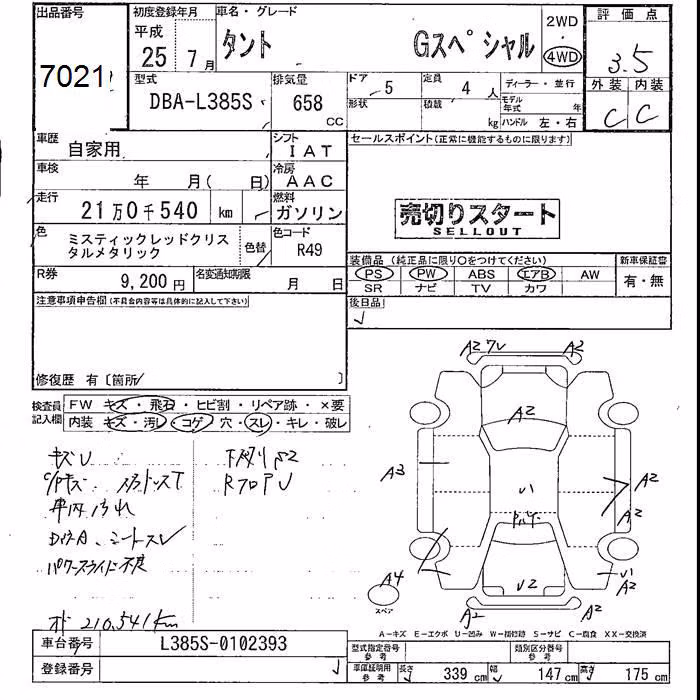 出品番号
7021
初度登録年月
平成
25 7月
車名・グレード
タント Gスペシャル
2WD
4WD
評価点
3.5
外装 内装
C C
型式
DBA-L385S
排気量
658 CC
ドア 5
形状
定員 4 人
積載 kg
ディーラー・並行
モデル年式 年
ハンドル 左・右
車歴
自家用
シフト
IAT
車検
年 月( 日)
冷房
AAC
走行
21万0千540 km
燃料
ガソリン
色
ミスティックレッドクリスタルメタリック
色替
色コード
R49
R券
9,200円
名変通知期限
月 日
セールスポイント(正常に機能するものに限ります)
売切りスタート
SELLOUT
装備品 (純正品に限り○をつけてください)
PS PW ABS エアB AW
SR ナビ TV カワ
新車保証書
有・無
後日品
注意事項申告欄(不具合内容等は具体的に記入して下さい)
修復歴 有〔箇所 〕
検査員記入欄
FW キズ・飛石・ヒビ割・リペア跡・×要
内装 キズ・汚レ・コゲ・穴・スレ・キレ・破レ
キズU
車内汚れ
シートスレ
パワースライド不良
オド 210,541km
A2 A2
A2
A3
A2
A2
U2
A4
スペア
A2 A2
A-キズ E-エクボ U-凹み W-補修跡 S-サビ C-腐食 XX-交換済
車台番号
L385S-0102393
登録番号
型式指定番号
参考
類別区分番号
参考
車庫証明用
参考
長さ 339 cm
幅 147 cm
高さ 175 cm